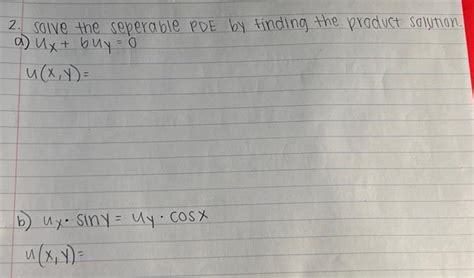 2. solve the seperable PDE by finding the product solution.
a) u_x + b u_y = 0
u(x,y)=
b) u_x · sin y = u_y · cos x
u(x,y)=